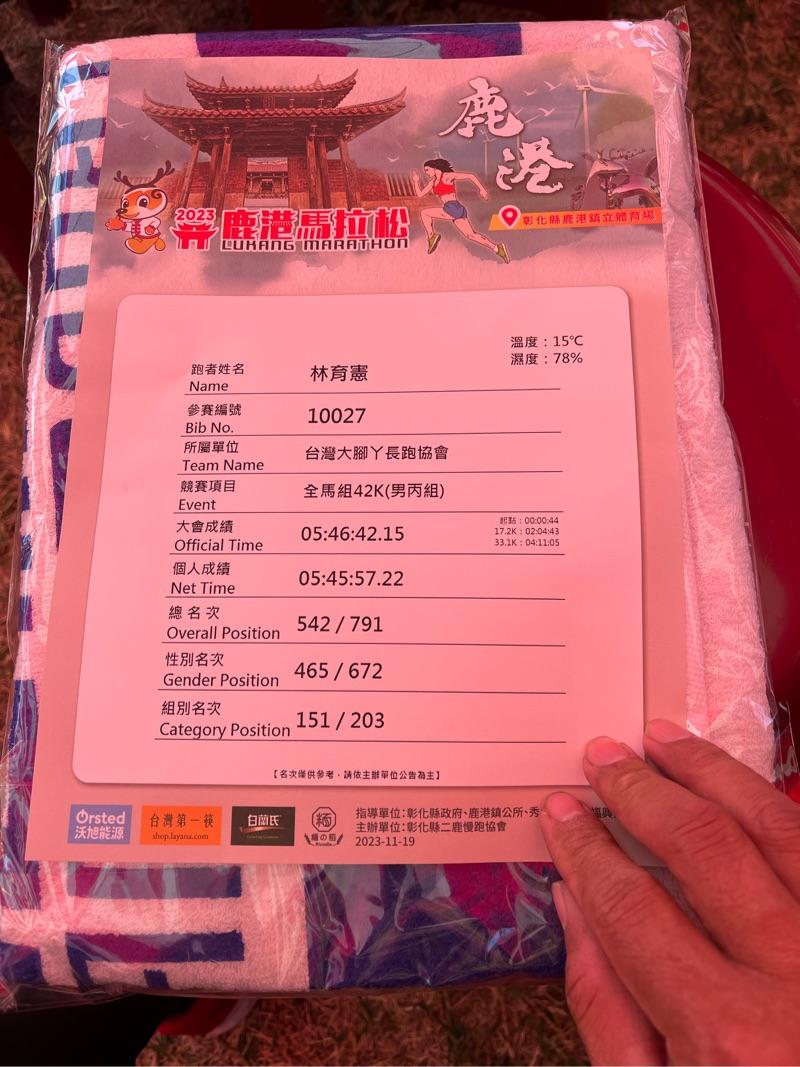 鹿港
2023
鹿港馬拉松
LUKANG MARATHON
彰化縣鹿港鎮立體育場
溫度：15℃
濕度：78%
跑者姓名
Name
林育憲
參賽編號
Bib No.
10027
所屬單位
Team Name
台灣大腳丫長跑協會
競賽項目
Event
全馬組42K(男丙組)
大會成績
Official Time
05:46:42.15
起點：00:00:44
17.2K：02:04:43
33.1K：04:11:05
個人成績
Net Time
05:45:57.22
總名次
Overall Position
542 / 791
性別名次
Gender Position
465 / 672
組別名次
Category Position
151 / 203
【名次僅供參考，請依主辦單位公告為主】
Ørsted
沃旭能源
台灣第一筷
shop.layana.com
白蘭氏
指導單位：彰化縣政府、鹿港鎮公所、秀
主辦單位：彰化縣二鹿慢跑協會
2023-11-19